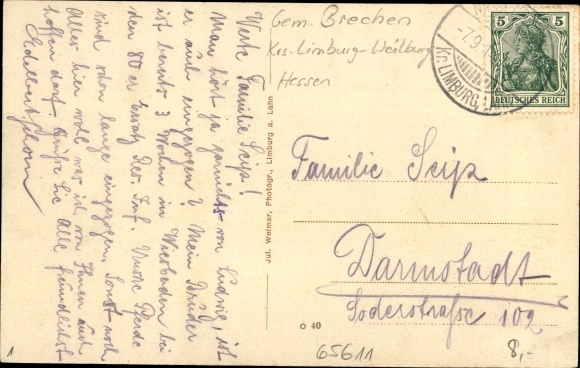 Werte Familie Seip!
Man hört ja garnichts von Ludwig, ist
er auch eingezogen? Mein Bruder
ist bereits 3 Wochen in Wiesbaden bei
den 80er Ersatz Res. Inf. Unsre Pferde
sind schon lange eingezogen. Sonst noch
Alles hier wohl, was ich von Ihnen auch
hoffen darf. Grüße Sie Alle freundlichst
Gem. Brechen
Krs. Limburg-Weilburg
Hessen
5 5
DEUTSCHES REICH
-7.9.1
Kr. LIMBURG
Familie Seip
Darmstadt
Soderstraße 102
Jul. Weimar, Photogr., Limburg a. Lahn
O 40
1
65611
8,-